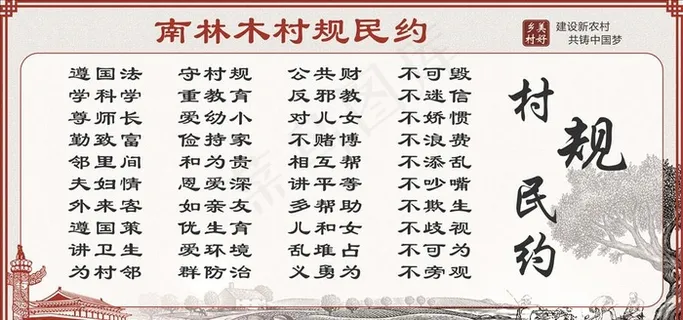 南林木村规民约
美好
乡村
建设新农村
共铸中国梦
遵国法 守村规 公共财 不可毁
学科学 重教育 反邪教 不迷信
尊师长 爱幼小 对儿女 不娇惯
勤致富 俭持家 不赌博 不浪费
邻里间 和为贵 相互帮 不添乱
夫妇情 恩爱深 讲平等 不吵嘴
外来客 如亲友 多帮助 不欺生
遵国策 优生育 儿和女 不歧视
讲卫生 爱环境 乱堆占 不可为
为村邻 群防治 义勇为 不旁观
村规民约